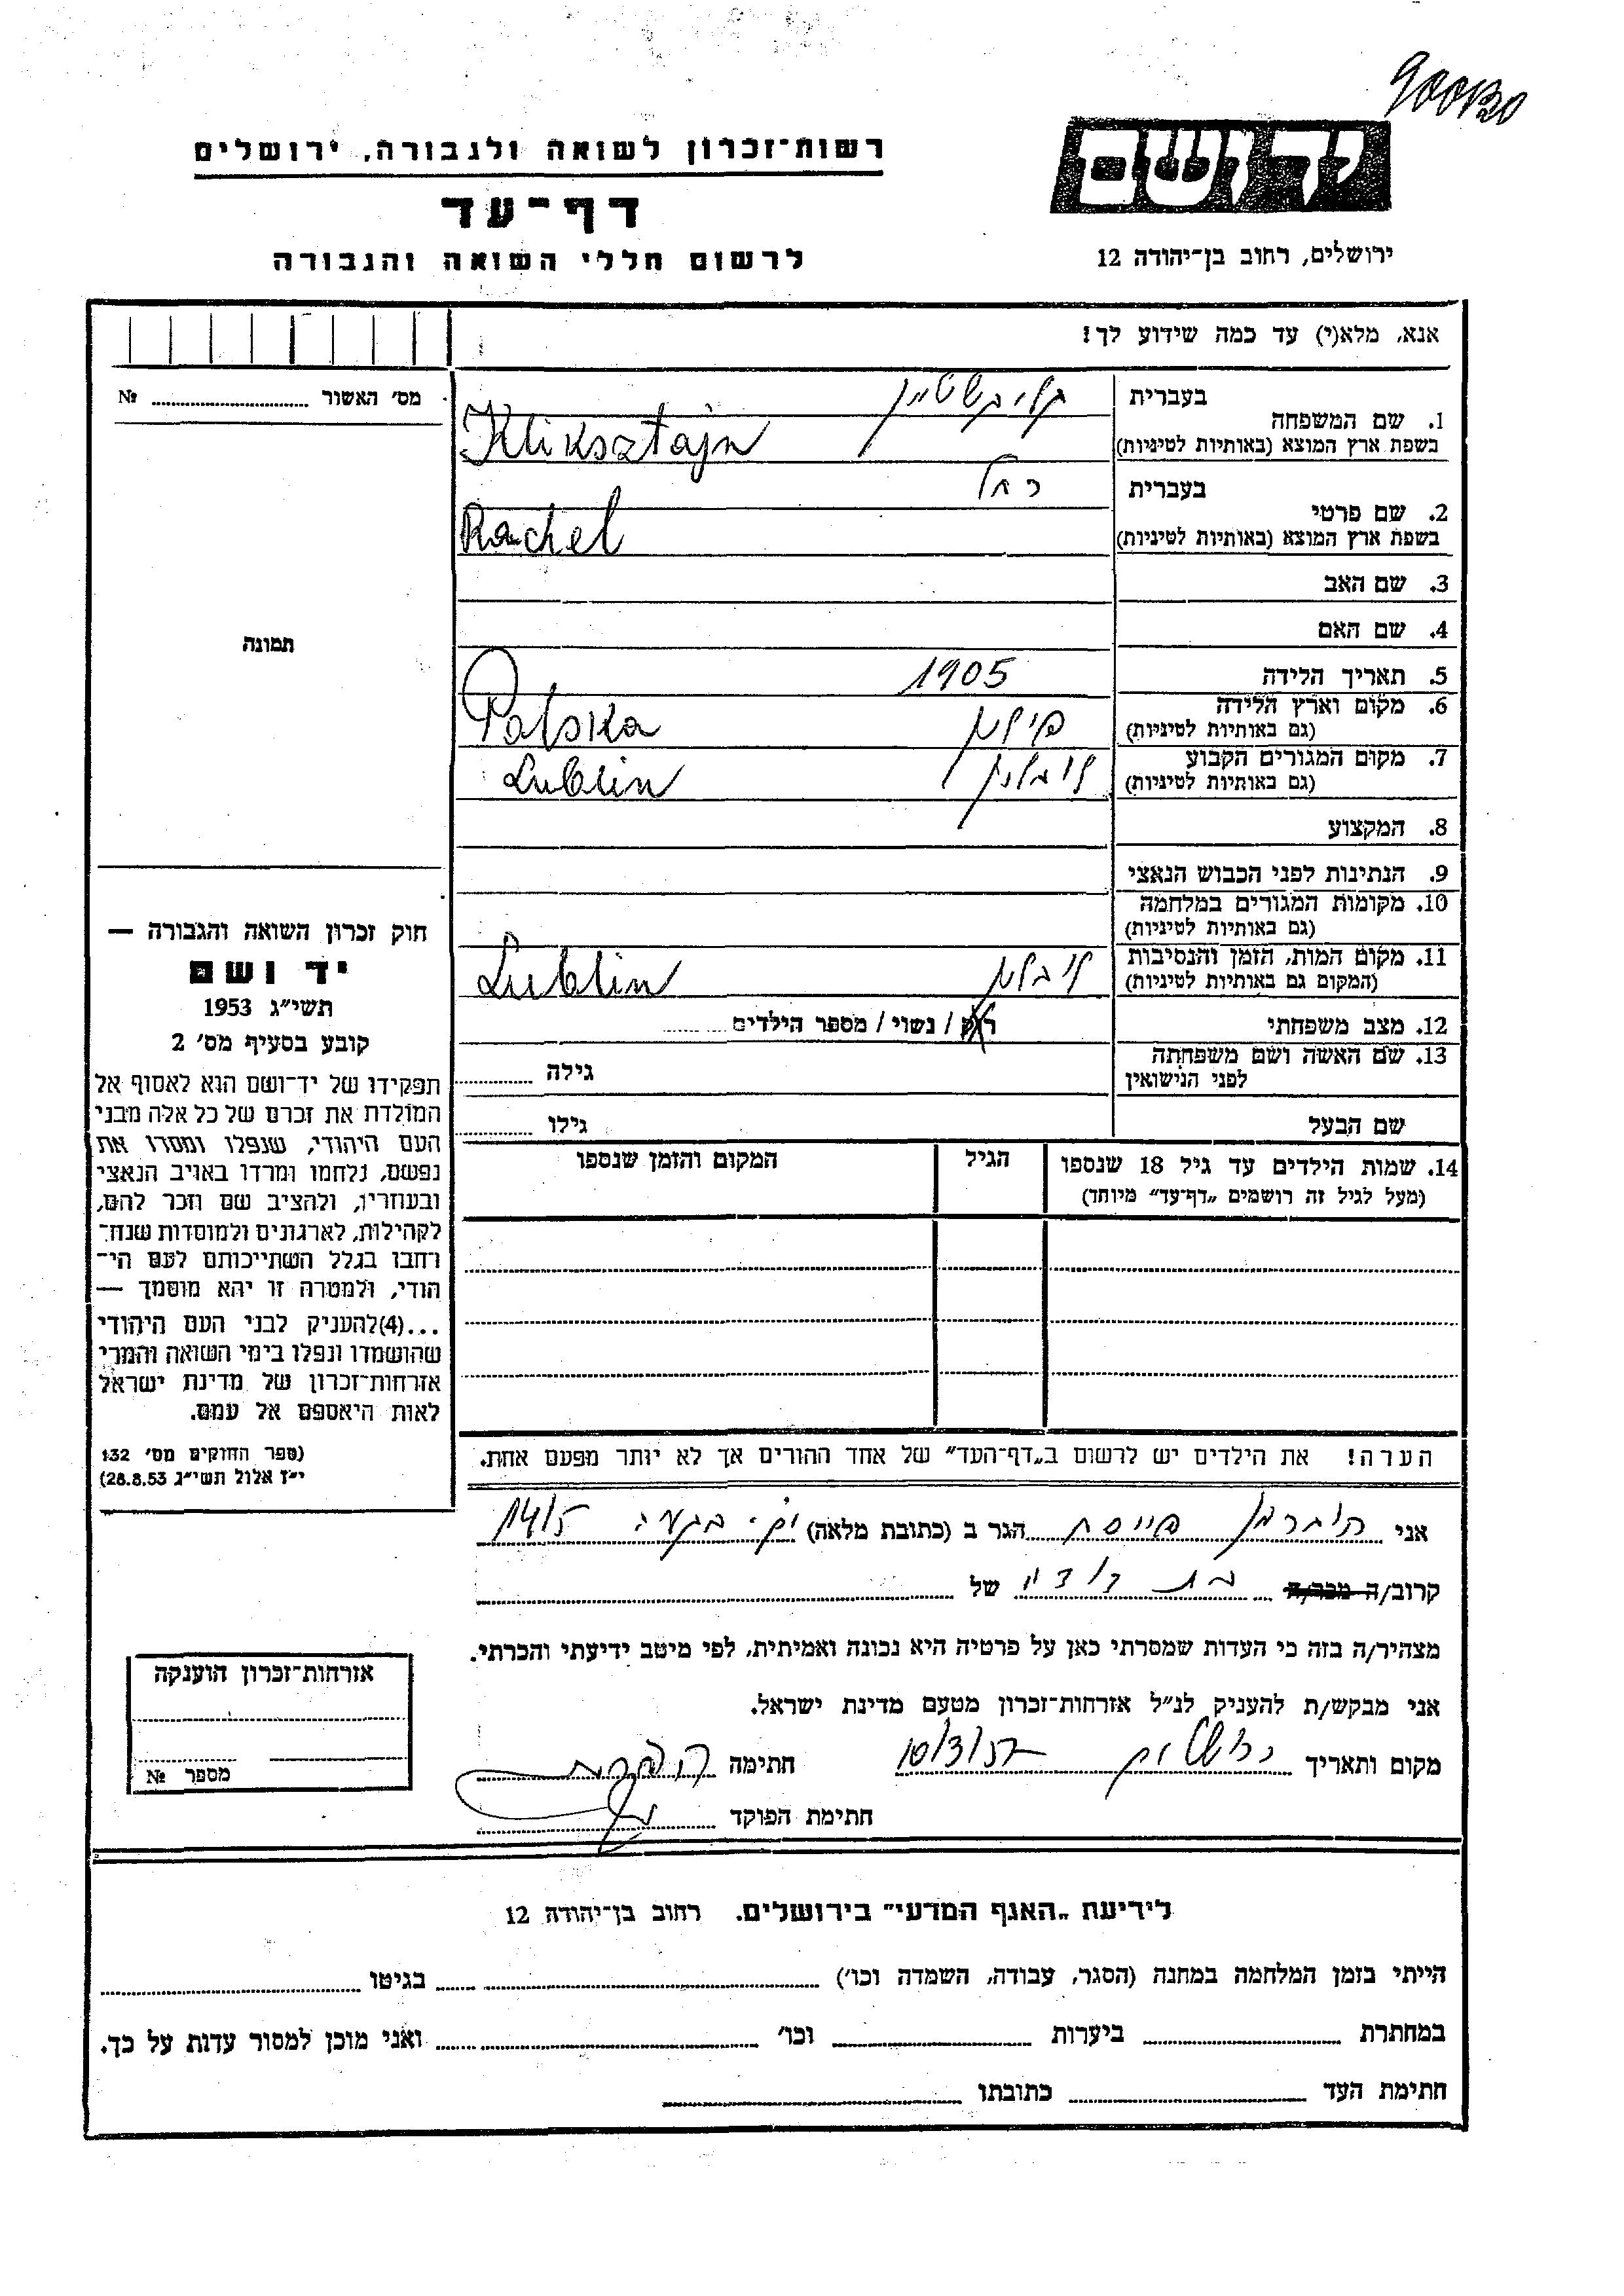 900130
יד ושם
ירושלים, רחוב בן־יהודה 12
רשות־זכרון לשואה ולגבורה, ירושלים
דף־עד
לרשום חללי השואה והגבורה
אנא, מלא(י) עד כמה שידוע לך!
מס׳ האשור № 
1. שם המשפחה
בעברית קליקשטיין
בשפת ארץ המוצא (באותיות לטיניות) Kliksztajn
2. שם פרטי
בעברית רחל
בשפת ארץ המוצא (באותיות לטיניות) Rachel
3. שם האב
4. שם האם
תמונה
5. תאריך הלידה 1905
6. מקום וארץ הלידה
(גם באותיות לטיניות) פולין Polska
7. מקום המגורים הקבוע
(גם באותיות לטיניות) לובלין Lublin
8. המקצוע
9. הנתינות לפני הכבוש הנאצי
10. מקומות המגורים במלחמה
(גם באותיות לטיניות)
11. מקום המות, הזמן והנסיבות
(המקום גם באותיות לטיניות) לובלין Lublin
12. מצב משפחתי רווק / נשוי / מספר הילדים
13. שם האשה ושם משפחתה
לפני הנישואין גילה
שם הבעל גילו
14. שמות הילדים עד גיל 18 שנספו
(מעל לגיל זה רושמים „דף־עד״ מיוחד)
הגיל
המקום והזמן שנספו
הערה! את הילדים יש לרשום ב„דף־העד״ של אחד ההורים אך לא יותר מפעם אחת.
חוק זכרון השואה והגבורה —
יד ושם
תשי״ג 1953
קובע בסעיף מס׳ 2
תפקידו של יד־ושם הוא לאסוף אל
המולדת את זכרם של כל אלה מבני
העם היהודי, שנפלו ומסרו את
נפשם, נלחמו ומרדו באויב הנאצי
ובעוזריו, ולהציב שם וזכר להם,
לקהילות, לארגונים ולמוסדות שנח־
רחבו בגלל השתייכותם לעם הי־
הודי, ולמטרה זו יהא מוסמך —
...(4)להעניק לבני העם היהודי
שהושמדו ונפלו בימי השואה והמרי
אזרחות־זכרון של מדינת ישראל
לאות היאספם אל עמם.
(ספר החוקים מס׳ 132
י״ז אלול תשי״ג 28.8.53)
אני הוברמן הגר ב (כתובת מלאה) 14/5
קרוב/ה מכר/ה בת דודי של
מצהיר/ה בזה כי העדות שמסרתי כאן על פרטיה היא נכונה ואמיתית, לפי מיטב ידיעתי והכרתי.
אני מבקש/ת להעניק לנ״ל אזרחות־זכרון מטעם מדינת ישראל.
מקום ותאריך ירושלים 10/3/57 חתימה
חתימת הפוקד
אזרחות־זכרון הוענקה
מספר №
לידיעת „האגף המדעי״ בירושלים. רחוב בן־יהודה 12
הייתי בזמן המלחמה במחנה (הסגר, עבודה, השמדה וכו׳) בגיטו
במחתרת ביערות וכו׳ ואני מוכן למסור עדות על כך.
חתימת העד כתובתו